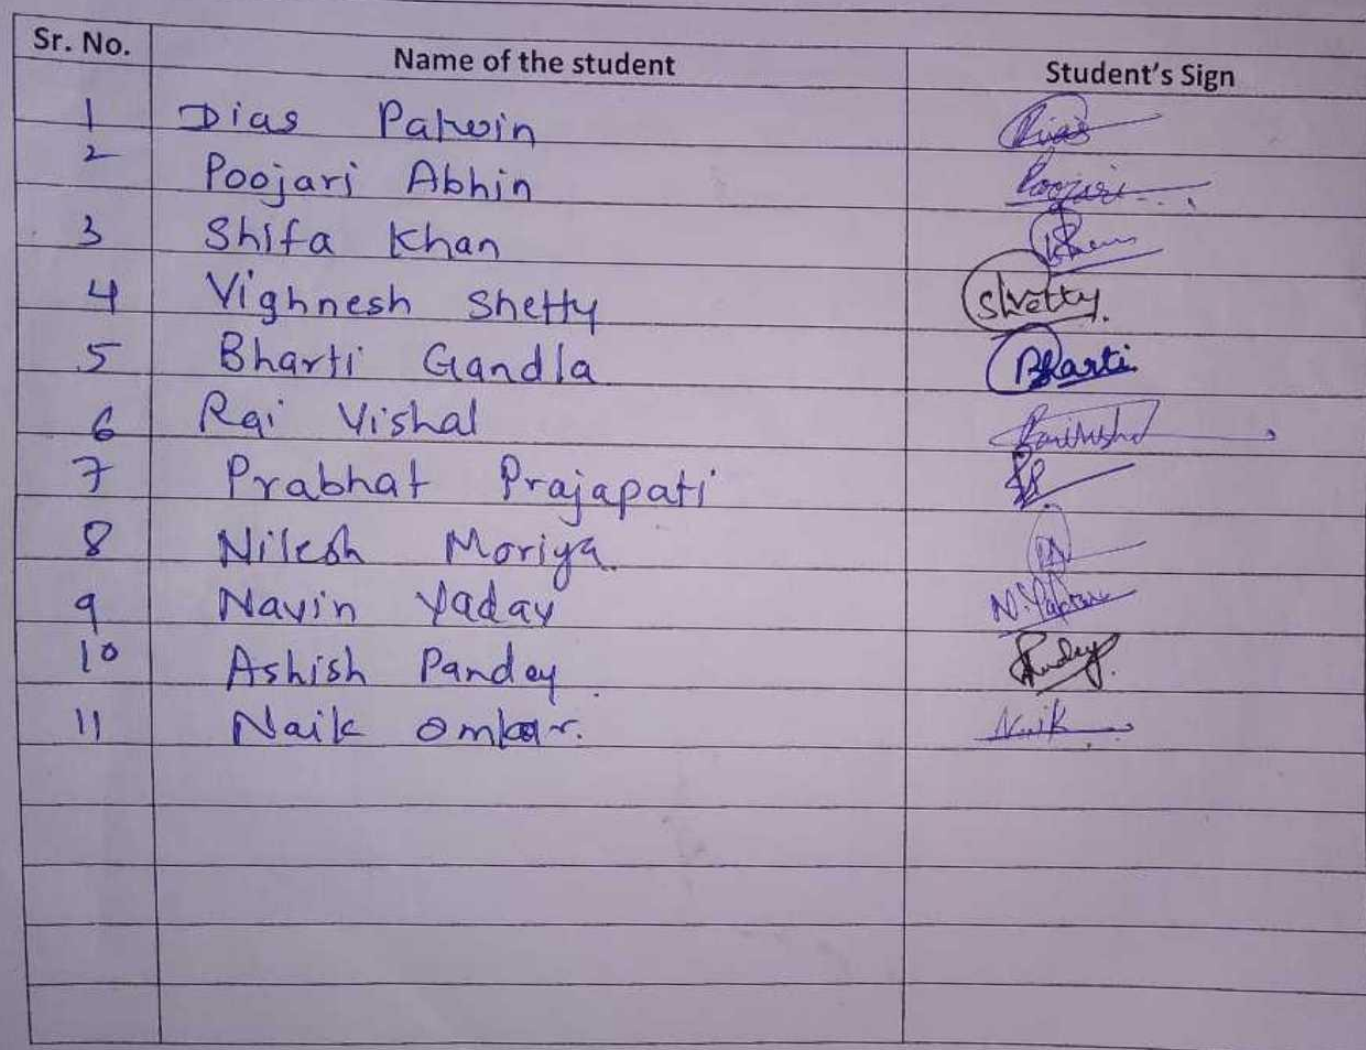 Sr. No. Name of the student Student's Sign
1 Dias Palwin Dias
2 Poojari Abhin Poojari
3 Shifa Khan
4 Vighnesh Shetty Shetty.
5 Bharti Gandla Bharti
6 Rai Vishal
7 Prabhat Prajapati
8 Nilesh Moriya.
9 Navin Yadav
10 Ashish Pandey.
11 Naik Omkar. Naik